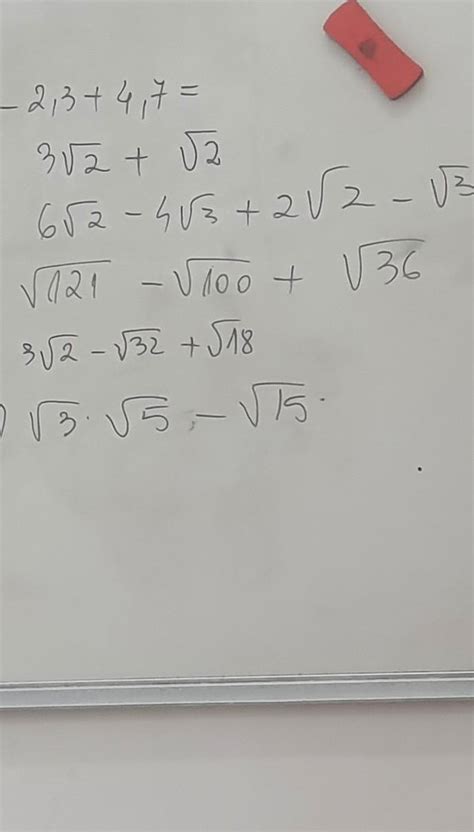 - 2,3 + 4,7 =
3√2 + √2
6√2 - 4√3 + 2√2 - √3
√121 - √100 + √36
3√2 - √32 + √18
) √3 · √5 - √15